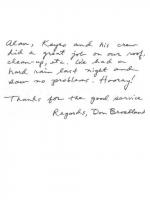 Alan, Keyco and his crew
did a great job on our roof,
clean-up, etc. We had a
hard rain last night and
saw no problems. Hooray!
Thanks for the good service
Regards, Don